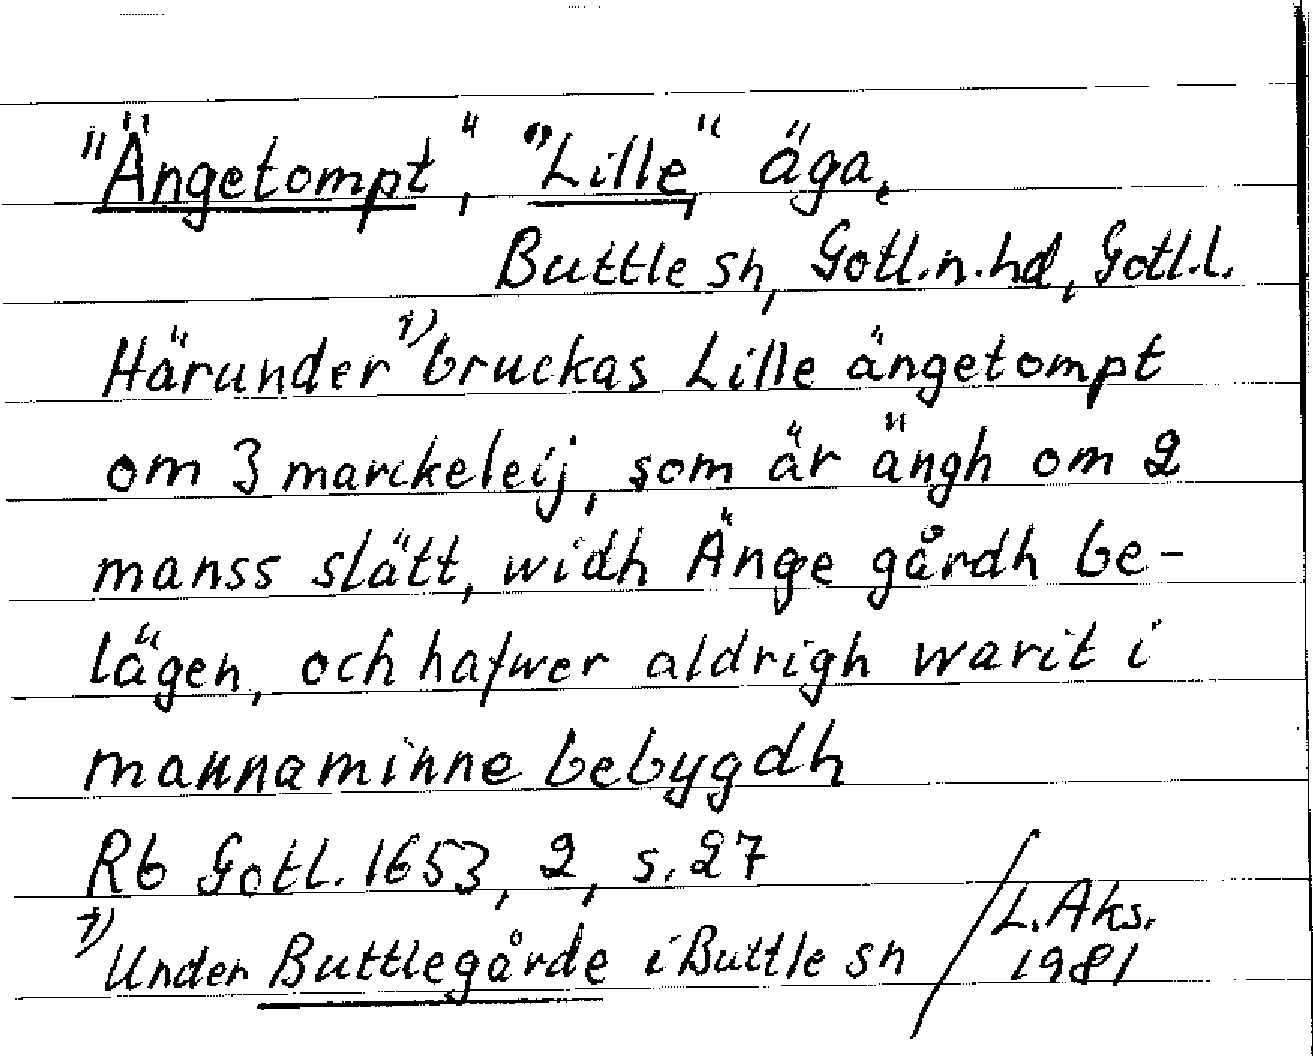 "Ängetompt", "Lille", äga,
Buttle sn, Gotl.n.hd, Gotl.l.
Härunder 1) bruckas Lille ängetompt
om 3 marckeleij, som är ängh om 2
manss slätt, widh Änge gårdh be-
lägen, och hafwer aldrigh warit i
mannaminne bebygdh
Rb Gotl. 1653, 2, s. 27
1) Under Buttlegårde i Buttle sn
L. Aks.
1981